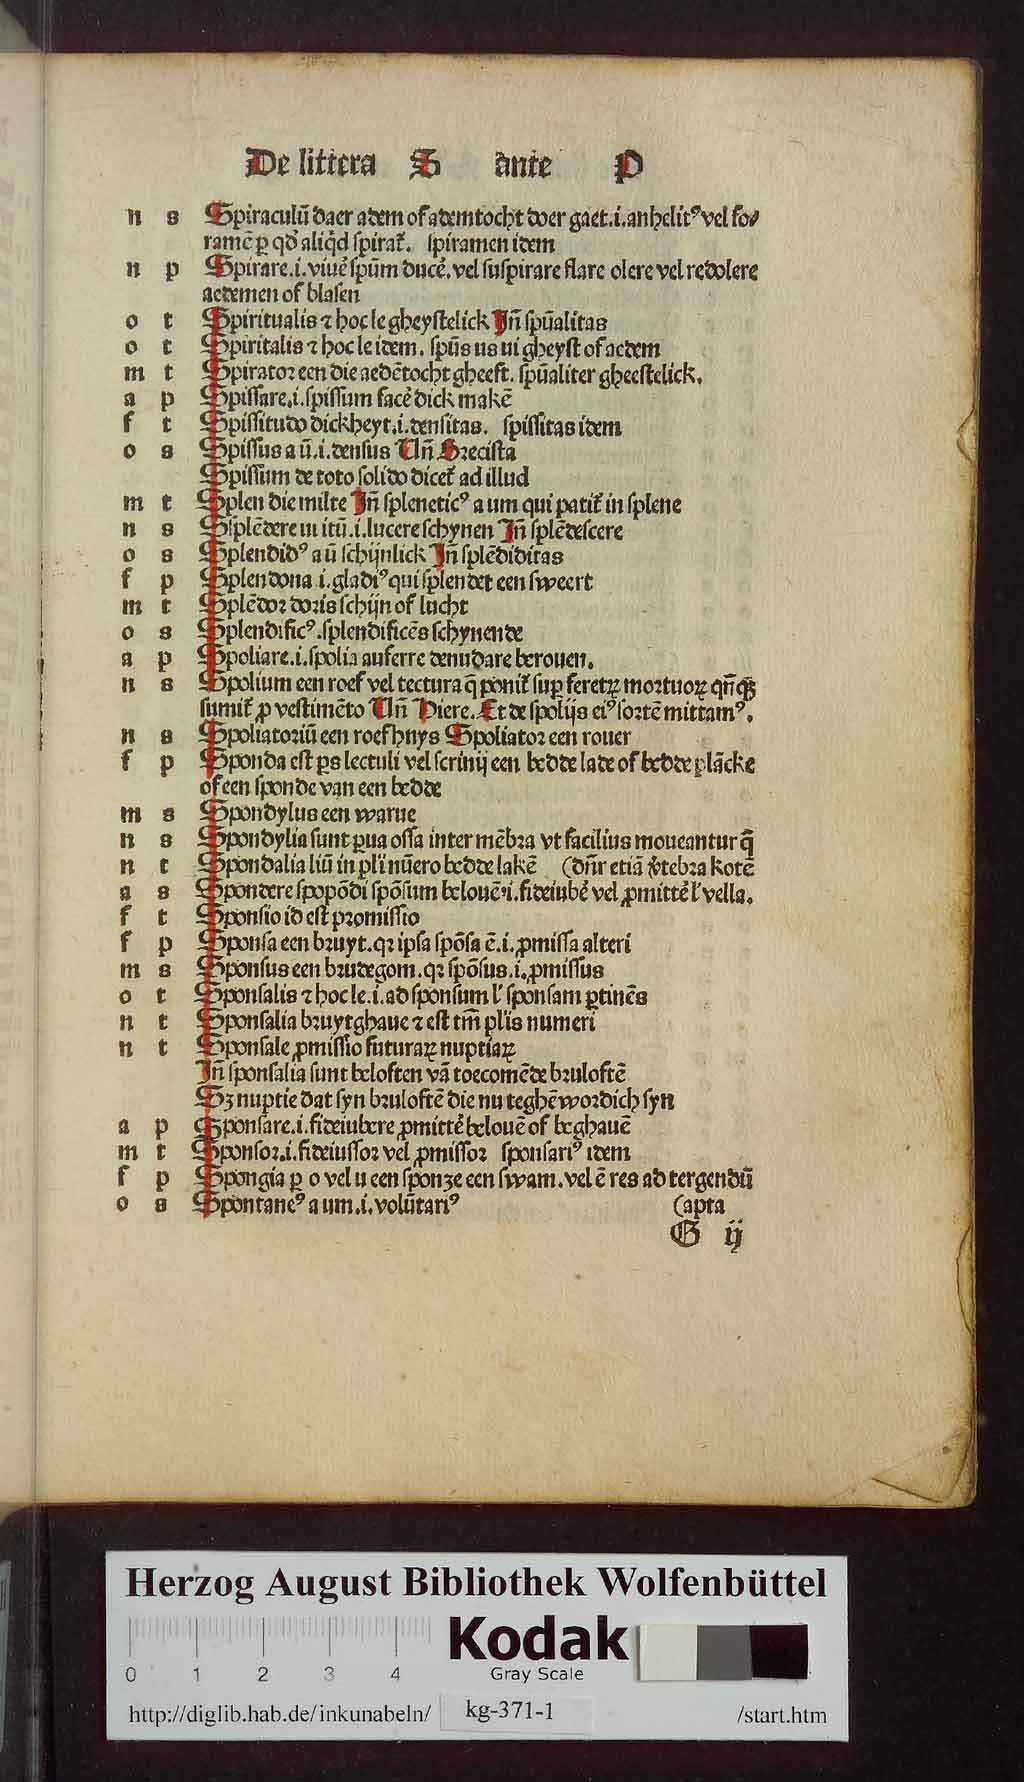 De littera S ante P
n s Spiraculū daer adem of ademtocht doer gaet.i.anhelitꝰ vel fo⸗
ramē ꝑ qđ aliqͥd spirat᷑. spiramen idem
n p Spirare.i.viuē spūm ducē.vel suspirare flare olere vel redolere
aedemen of blasen
o t Spiritualis ⁊ hoc le gheystelick Jn̄ spūalitas
o t Spiritalis ⁊ hoc le idem. spūs us ui gheyst of aedem
m t Spirator een die aedētocht gheeft. spūaliter gheestelick.
a p Spissare.i.spissum facē dick makē
f t Spissitudo dickheyt.i.densitas. spissitas idem
o s Spissus a ū.i.densus Un̄ Grecista
Spissum de toto solido dicet᷑ ad illud
m t Splen die milte Jn̄ spleneticꝰ a um qui patit᷑ in splene
n s Splēdere ui itū.i.lucere schynen Jn̄ splēdescere
o s Splendidꝰ a ū schijnlick Jn̄ splēdiditas
f p Splendona.i.gladiꝰ qui splendet een sweert
m t Splēdor doris schijn of lucht
o s Splendificꝰ.splendificēs schynende
a p Spoliare.i.spolia auferre denudare berouen.
n s Spolium een roef vel tectura q̄ ponit᷑ suꝑ feretꝝ mortuoꝝ qn̄qꝫ
sumit᷑ ꝓ vestimēto Un̄ Piere. Et de spolijs eiꝰ sortē mittamꝰ.
n s Spoliatoriū een roefhuys Spoliator een rouer
f p Sponda est ꝑs lectuli vel scrinij een bedde lade of bedde plācke
of een sponde van een bedde
m s Spondylus een warue
n s Spondylia sunt ꝑua ossa inter mēbra vt facilius moueantur q̄
n t Spondalia liū in pl̄i nūero bedde lakē (dn̄r etiā v̓tebra kotē
a s Spondere spopōdi spōsum belouē.i.fideiubē vel ꝓmittē l' vella.
f t Sponsio id est promissio
f p Sponsa een bruyt.qꝛ ipsa spōsa ē.i.ꝓmissa alteri
m s Sponsus een brudegom.qꝛ spōsus.i.ꝓmissus
o t Sponsalis ⁊ hoc le.i.ad sponsum l' sponsam ꝑtinēs
n t Sponsalia bruytghaue ⁊ est tm̄ pl̄is numeri
n t Sponsale ꝓmissio futuraꝝ nuptiaꝝ
Jn̄ sponsalia sunt beloften vā toecomēde bruloftē
Sꝫ nuptie dat syn bruloftē die nu teghēwordich syn
a p Sponsare.i.fideiubere ꝓmittē belouē of beghauē
m t Sponsor.i.fideiussor vel ꝓmissor sponsariꝰ idem
f p Spongia ꝑ o vel u een sponze een swam.vel ē res ad tergendū
o s Spontaneꝰ a um.i.volūtariꝰ (apta
G ij
Herzog August Bibliothek Wolfenbüttel
0 1 2 3 4
Kodak
Gray Scale
http://diglib.hab.de/inkunabeln/ kg-371-1 /start.htm